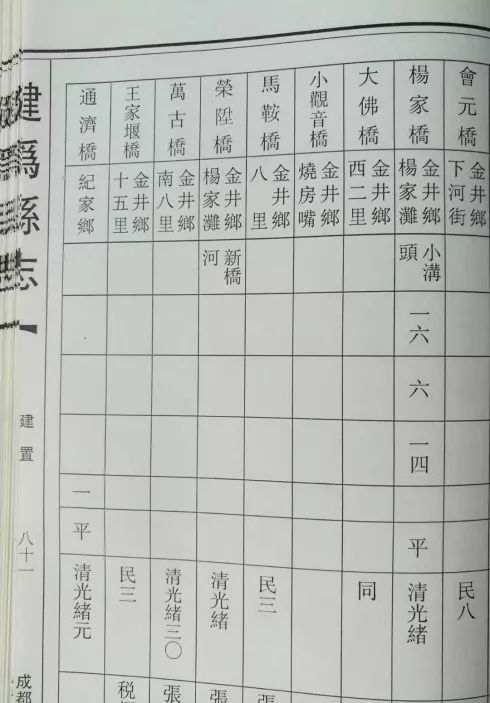 會元橋
金井鄉
下河街
民八
楊家橋
金井鄉
楊家灘
小溝
頭
一六
六
一四
平
清光緒
大佛橋
金井鄉
西二里
同
小觀音橋
金井鄉
燒房嘴
馬鞍橋
金井鄉
八里
民三
張
榮陞橋
金井鄉
楊家灘
新橋
河
清光緒
張
萬古橋
金井鄉
南八里
清光緒三〇
張
王家堰橋
金井鄉
十五里
民三
税
通濟橋
紀家鄉
一
平
清光緒元
犍爲縣志
建置
八十一
成都